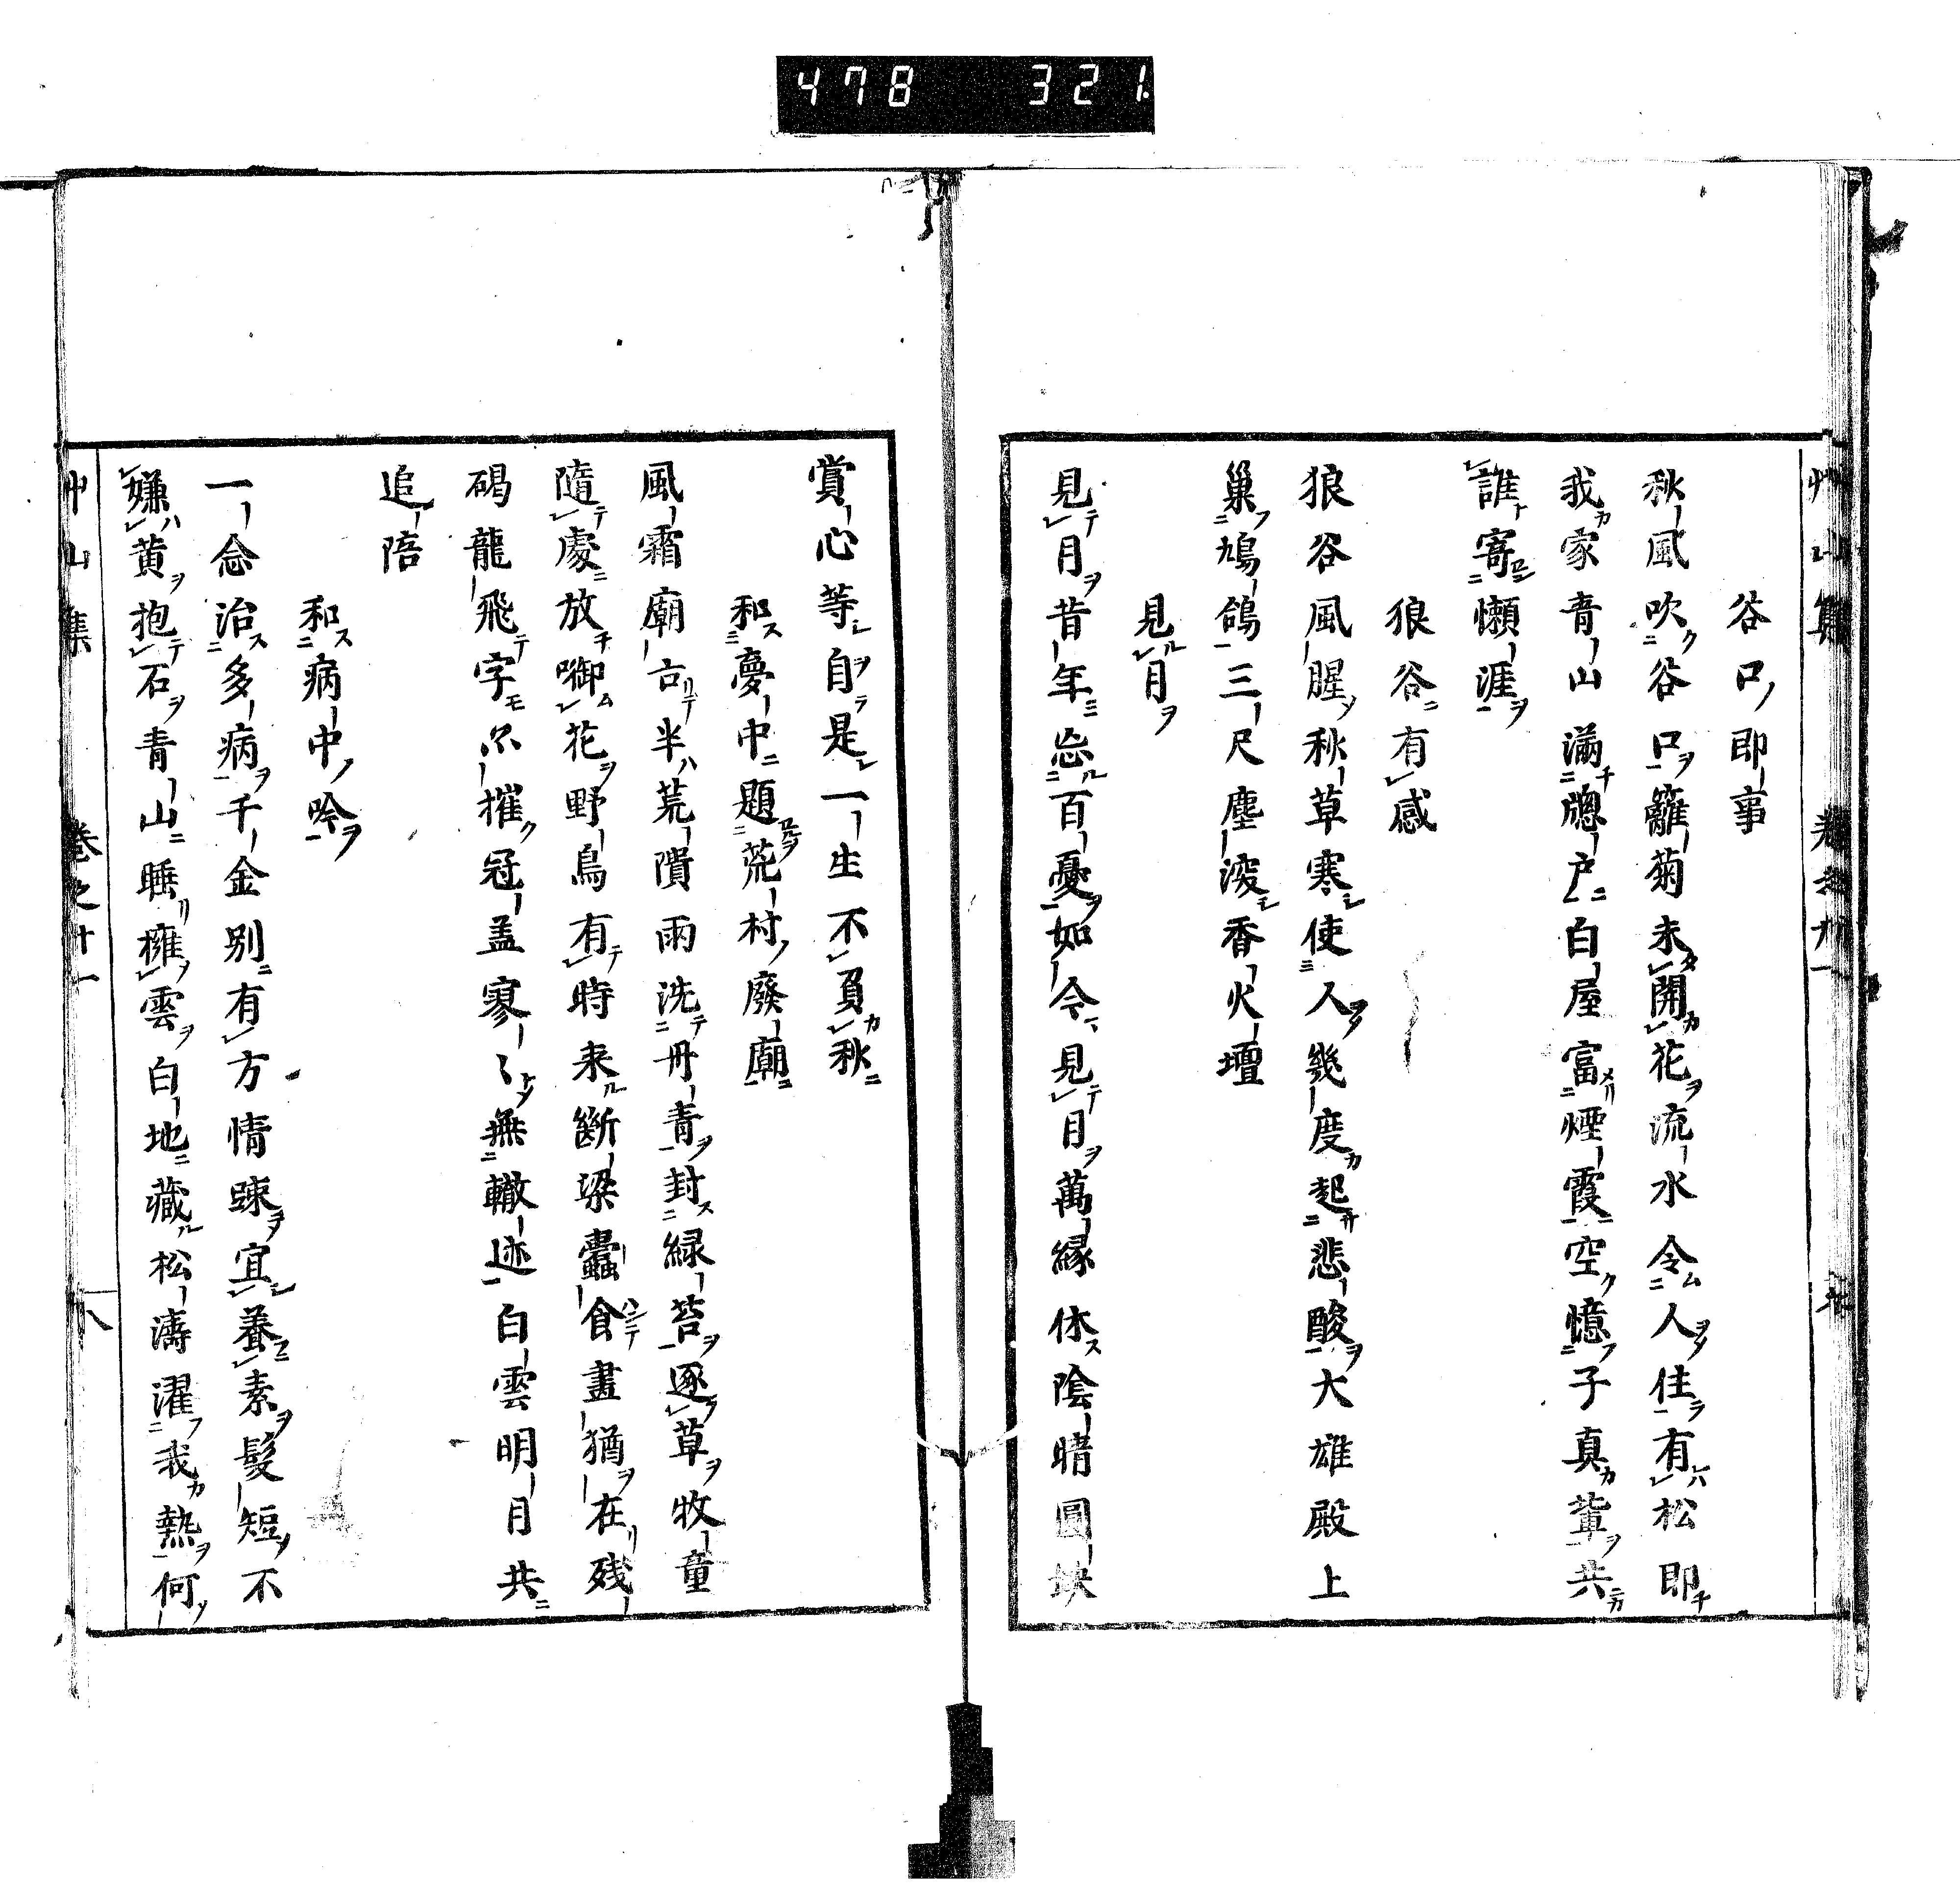 478 321.
谷口即事
秋風吹谷口籬菊未開花流水令人住有松即
我家青山滿牕戶白屋富煙霞空憶子真輩共
誰寄懶涯
狼谷有感
狼谷風腥秋草寒使人幾度起悲酸大雄殿上
巢鳩鴿三尺塵深香火壇
見月
見月昔年忘百憂如今見月萬緣休陰晴圓缺
賞心等自是一生不負秋
和夢中題荒村廢廟
風霜廟古半荒隤雨洗丹青封緑苔逐草牧童
隨處放啣花野鳥有時来斷梁蠹食畫猶在残
碣龍飛字不摧冠蓋寥〻無轍迹白雲明月共
追陪
和病中吟
一念治多病千金別有方情踈宜養素髮短不
嫌黄抱石青山睡擁雲白地藏松濤濯我熱何
艸山集 卷之十一 八